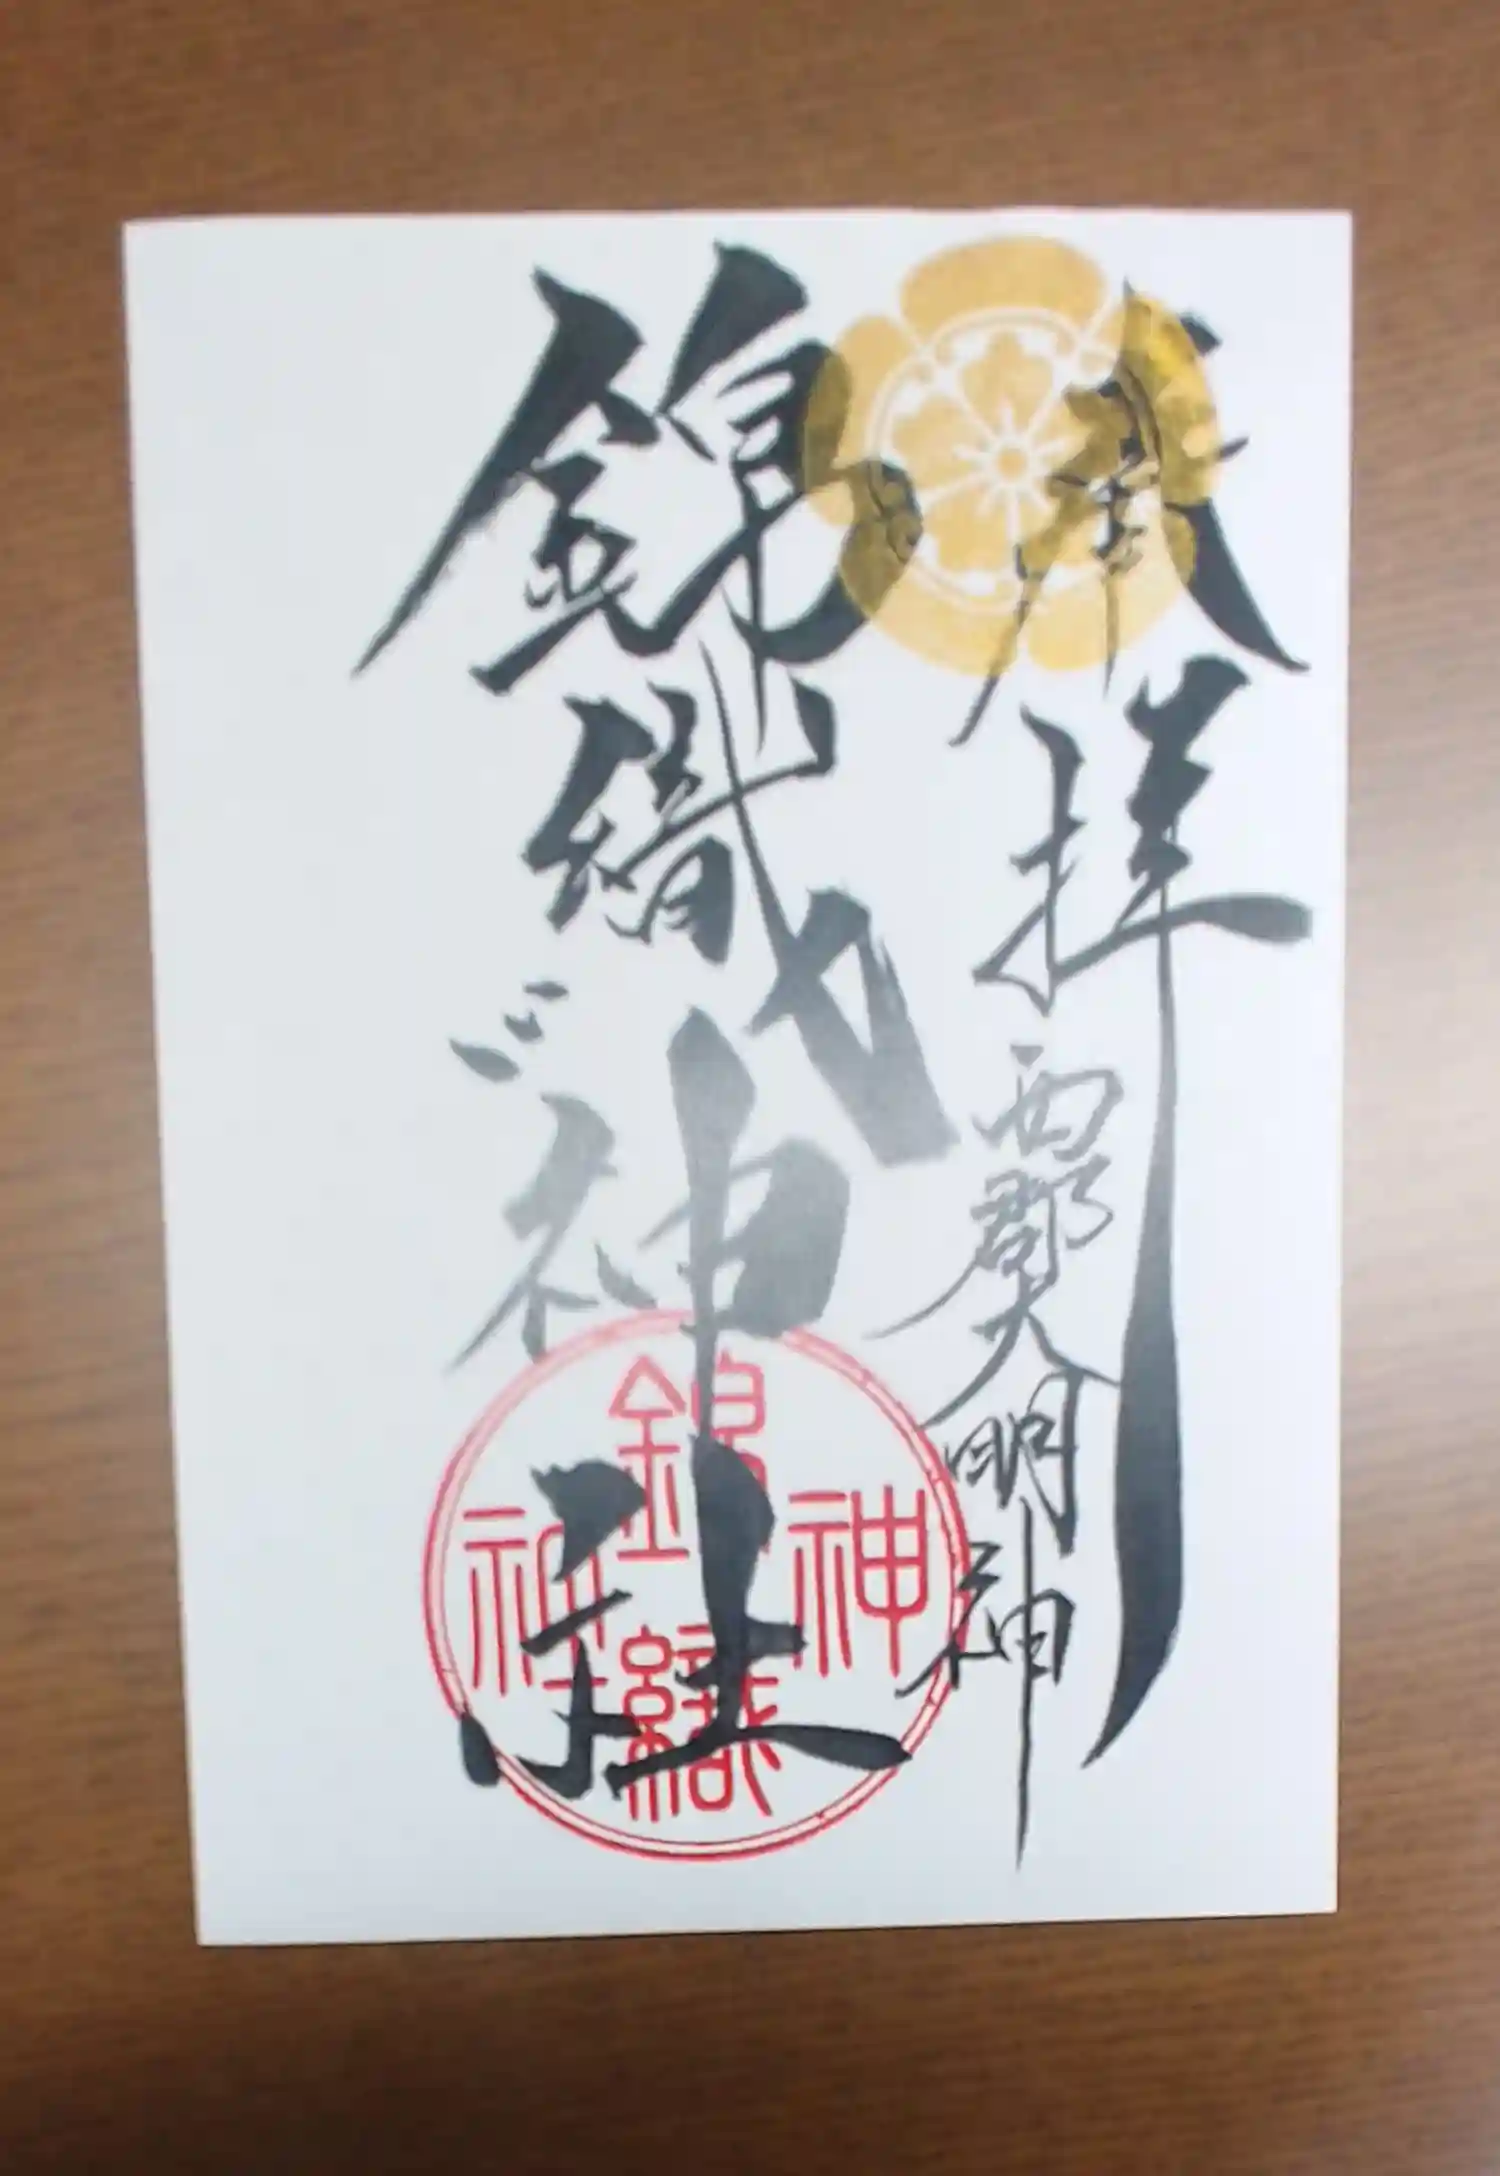 奉拝
西郡大明神
錦織神社
三
錦織神社